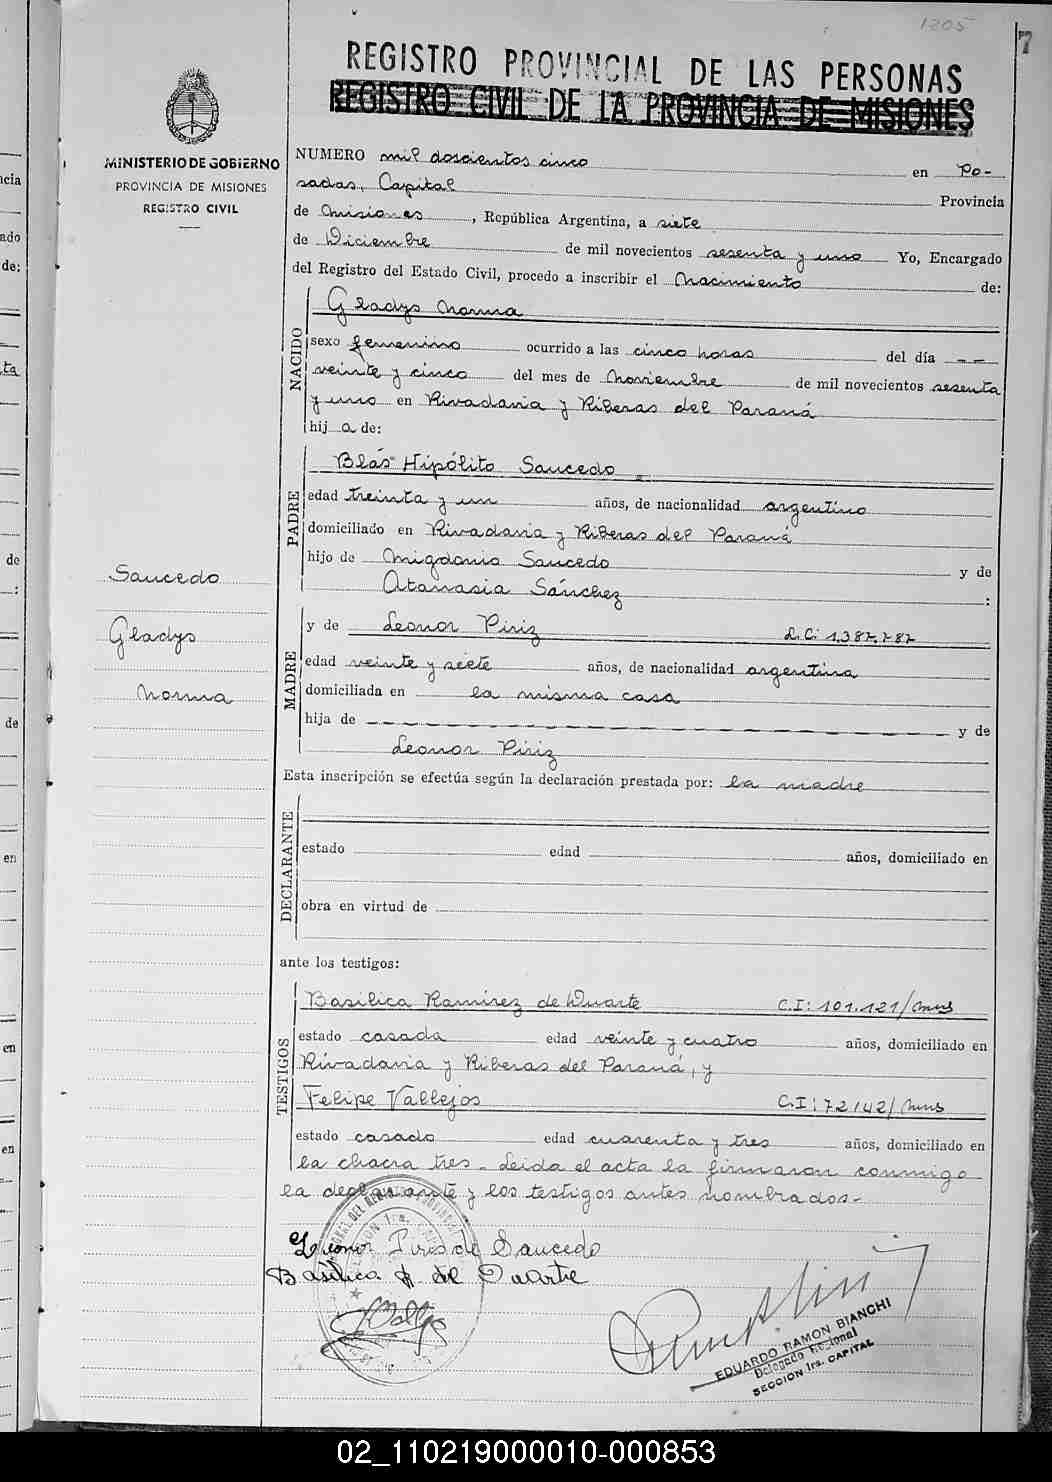 1205
7
REGISTRO PROVINCIAL DE LAS PERSONAS
REGISTRO CIVIL DE LA PROVINCIA DE MISIONES
MINISTERIO DE GOBIERNO
PROVINCIA DE MISIONES
REGISTRO CIVIL
NUMERO mil doscientos cinco en Po-
sadas, Capital Provincia
de Misiones, República Argentina, a siete
de Diciembre de mil novecientos sesenta y uno Yo, Encargado
del Registro del Estado Civil, procedo a inscribir el Nacimiento de:
NACIDO
Gladys Norma
sexo femenino ocurrido a las cinco horas del día --
veinte y cinco del mes de Noviembre de mil novecientos sesenta
y uno en Rivadavia y Riberas del Paraná
hij a de:
PADRE
Blás Hipólito Saucedo
edad treinta y un años, de nacionalidad argentino
domiciliado en Rivadavia y Riberas del Paraná
hijo de Migdonio Saucedo y de
Atanasia Sánchez :
MADRE
y de Leonor Piriz L.C: 1.387.787
edad veinte y siete años, de nacionalidad argentina
domiciliada en la misma casa
hija de - - - - - - - - - - - - - - - - y de
Leonor Piriz
Esta inscripción se efectúa según la declaración prestada por: la madre
DECLARANTE
estado edad años, domiciliado en
obra en virtud de
ante los testigos:
TESTIGOS
Basilica Ramirez de Duarte C.I: 101.121/Mns
estado casada edad veinte y cuatro años, domiciliado en
Rivadavia y Riberas del Paraná, y
Felipe Vallejos C.I: 72142/Mns
estado casado edad cuarenta y tres años, domiciliado en
la chacra tres - Leida el acta la firmaron conmigo
la declarante y los testigos antes nombrados.-
Saucedo
Gladys
Norma
Leonor Piris de Saucedo
Basilica R. de Duarte
EDUARDO RAMON BIANCHI
Delegado Seccional
SECCION 1ra. CAPITAL
02_110219000010-000853